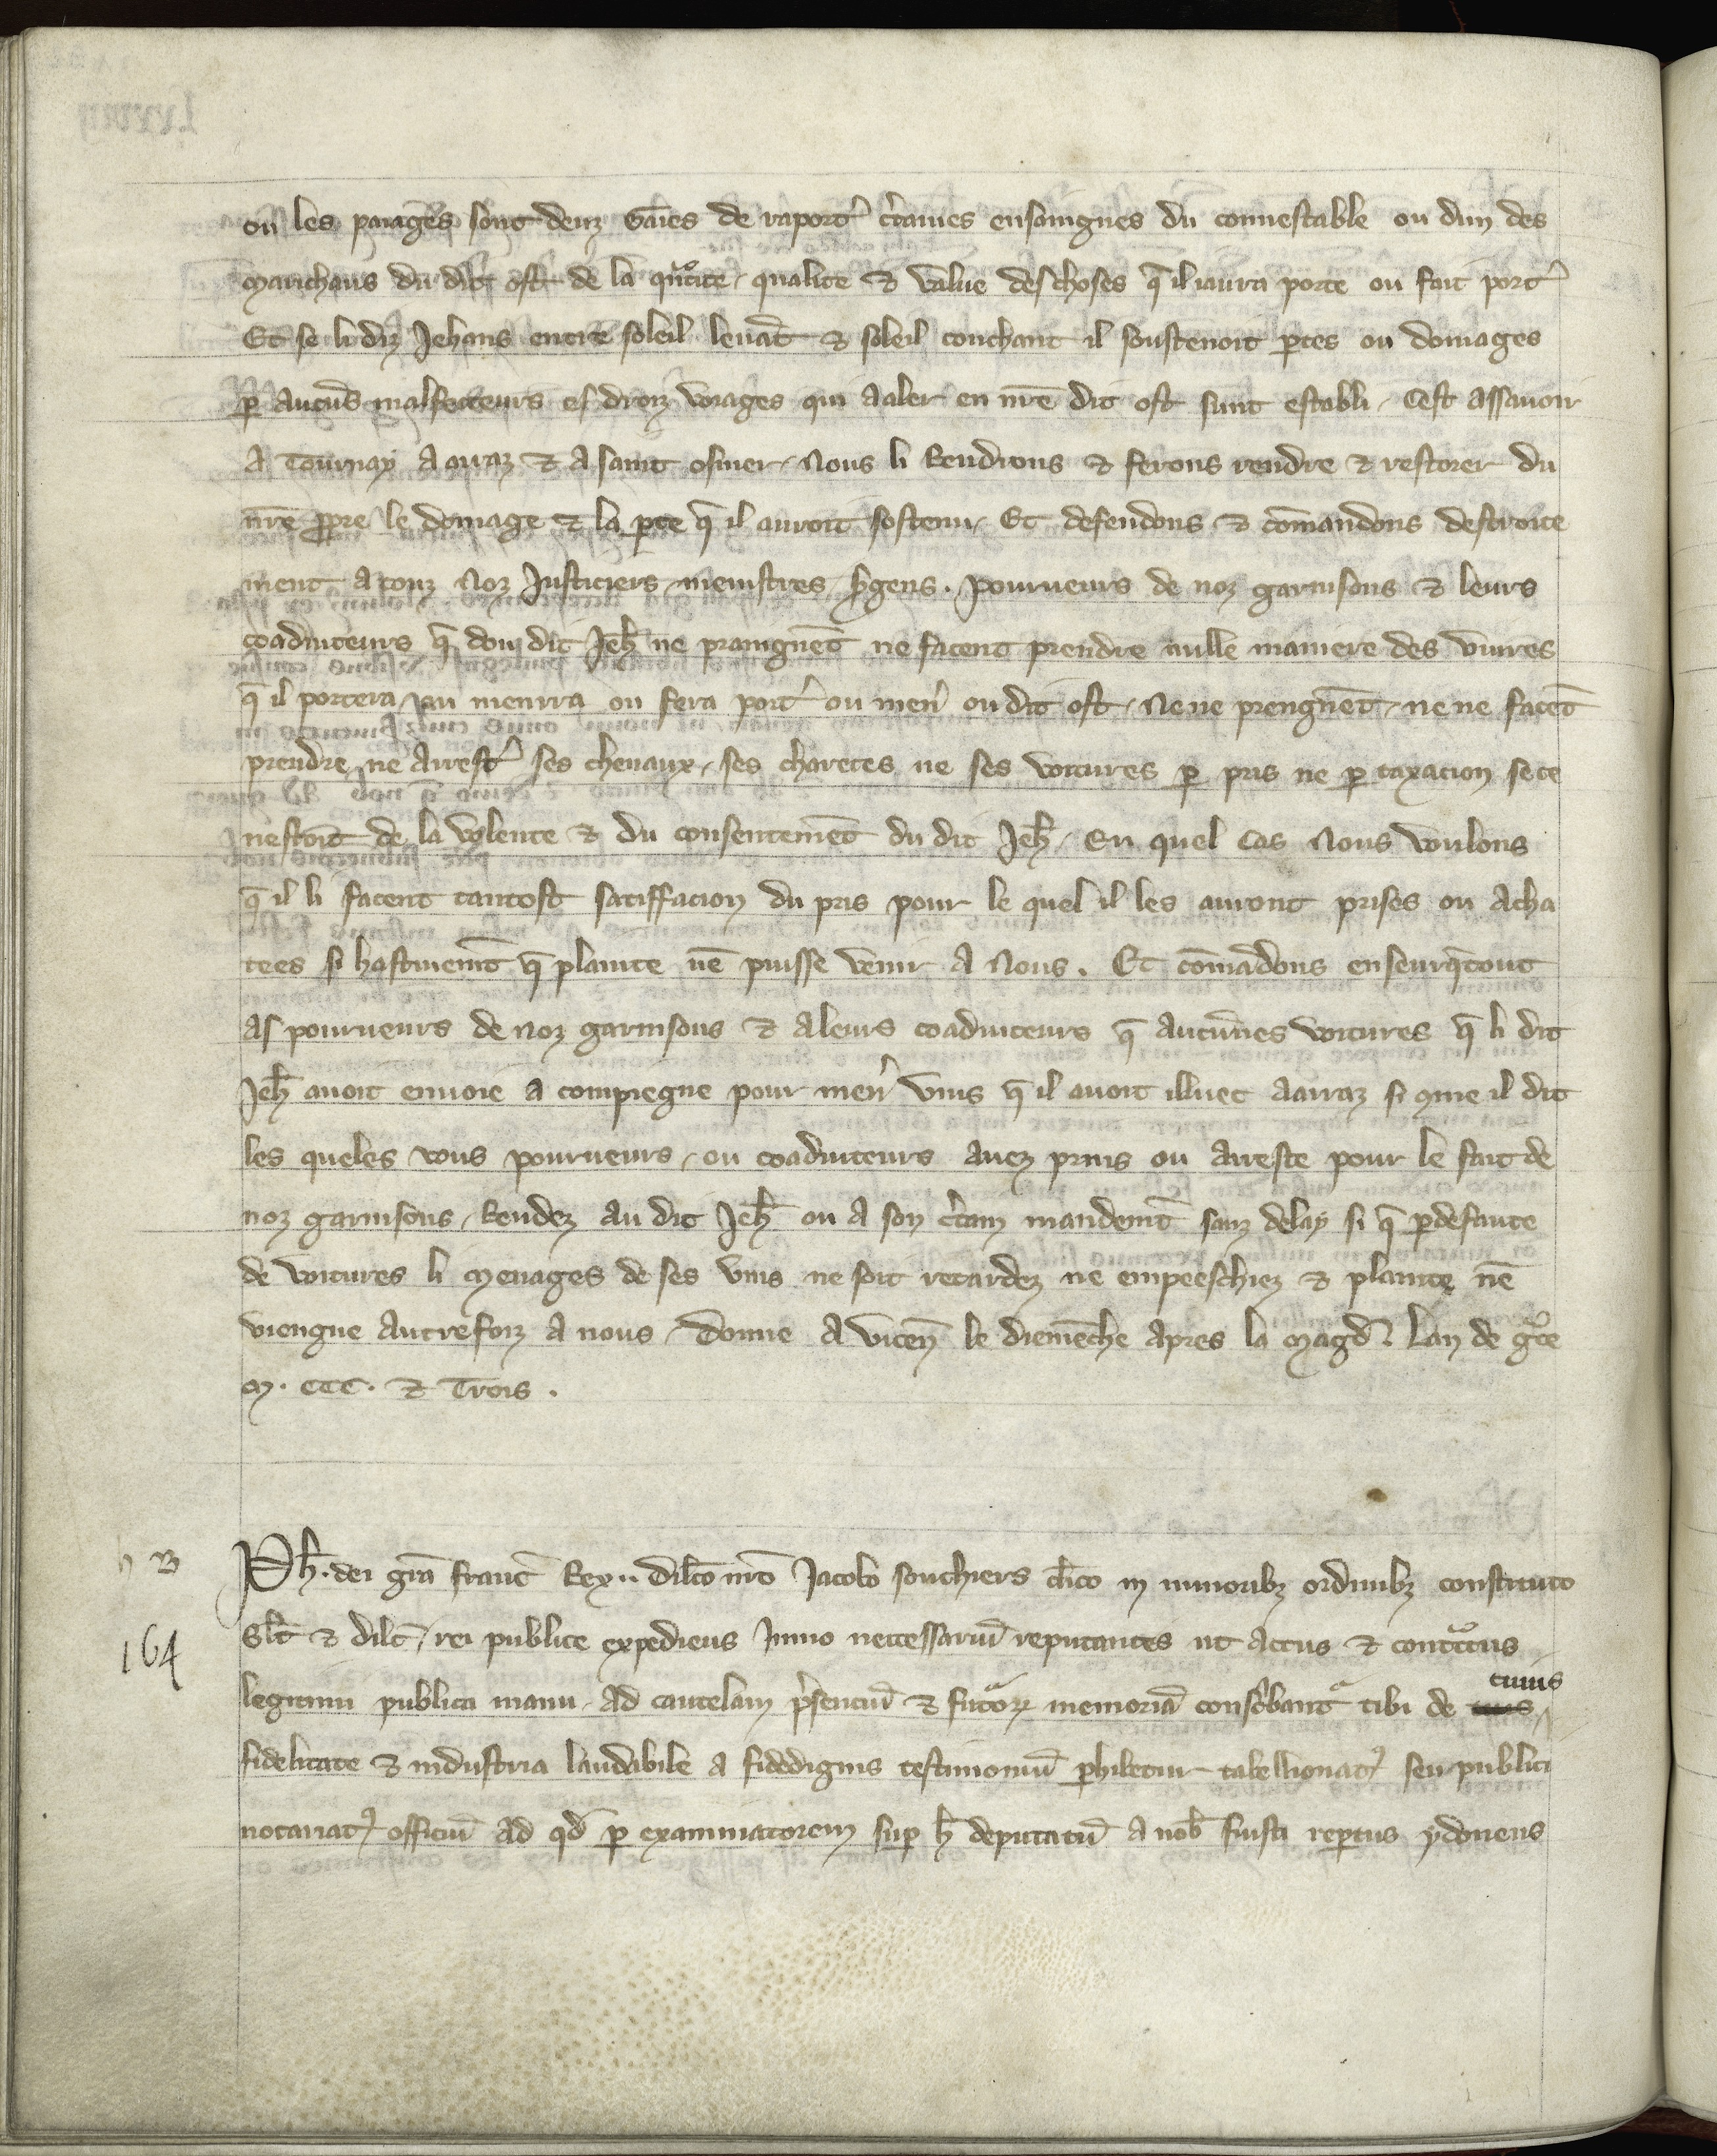 ou les paiages sont deuz Gaies de raportᷣ c̾taines ensaingnes du connestable ou dun des
Marichaus du dit ost de la qᷓntite, qualite ⁊ value des choses q̄ il i aura porte ou fait portᷣ
Et se li diz Jehans entre soleil leuāt ⁊ soleil couchant il soustenoit ꝑtes ou domages
ꝑ aucūs malfecteurs es droiz voiages qui a aler en nr̄e dit ost sunt establi, Cest assauoir
A Tournay A arraz ⁊ A saint osmer, Nous li Rendrons ⁊ ferons rendre ⁊ restorer du
nr̄e ꝓpre le domage ⁊ la ꝑte q̄ il auroit sostenu, Et defendons ⁊ cōmandons destroite
ment a touz Noz Justiciers, menistres, s̾gens. Pourueurs de noz garnisons ⁊ leurs
coadiuteurs q̄ dou dit Jeh̄ ne praingnēt ne facent prendre nulle maniere des viures
q̄ il portera, ou menrra ou fera portᷣ ou menᷣ ou dit ost, Ne ne prengnēt, ne ne facēt
prendre ne Arrestᷣ ses cheuaux, ses charetes ne ses voitures ꝑ pris ne ꝑ taxacion se ce
nestoit de la volente ⁊ du consentemēt du dit Jeh̄, En quel cas Nous voulons
q̄ il li facent tantost satiffacion du pris pour le quel il les auront prises ou Acha
tees si hastiuemt̄ q̄ plainte nē puisse venir A Nous. Et cōmādons enseurq̄tout
As pourueurs de Noz garnisons ⁊ A leurs coadiuteurs q̄ Aucūnes voitures q̄ li dit
Jeh̄ auoit enuoie a compiegne pour menᷣ vins q̄ il auoit illuec Aarraz si ꝯme il dit
les queles vous pourueurs, ou coadiuteurs auez prins ou Arreste pour le fait de
noz garnisons, Rendez Au dit Jeh̄ ou a son c̾tain mandemt̄ sanz delay si q̄ ꝑ defaute
de voitures li Menages de ses vins ne soit retardez ne empeeschiez ⁊ plainte nē
viengne Autrefoiz a nous, Donne A viceñ le diemēche Apres la Magd̄. Lan de gᷓce
M. CCC. ⁊ Trois.
h B
164
Ph̄. dei gr̄a franc̄ Rex.. Dilc̄o nr̄o Jacobo souchiers cl̄ico in minoribꝫ ordinibꝫ constituto
Sl̄t ⁊ dilc̄, rei publice expediens Jmmo neccessariū reputantes ut Actus ⁊ contᷓctus
legitimi publica manu, Ad cautelam p̾sentiū ⁊ futᷣoꝝ memoriā cons̾bantᷣ tibi de cuiu̇s
fidelitate ⁊ industria laudabile a fidedignis testimoniū ꝑhibetur tabellionatꝰ seu publici
notariatꝰ officiū Ad qd̄ ꝑ examinatorem suꝑ h̄ deputatū A nob̄ fuisti reꝑtus ydoneus